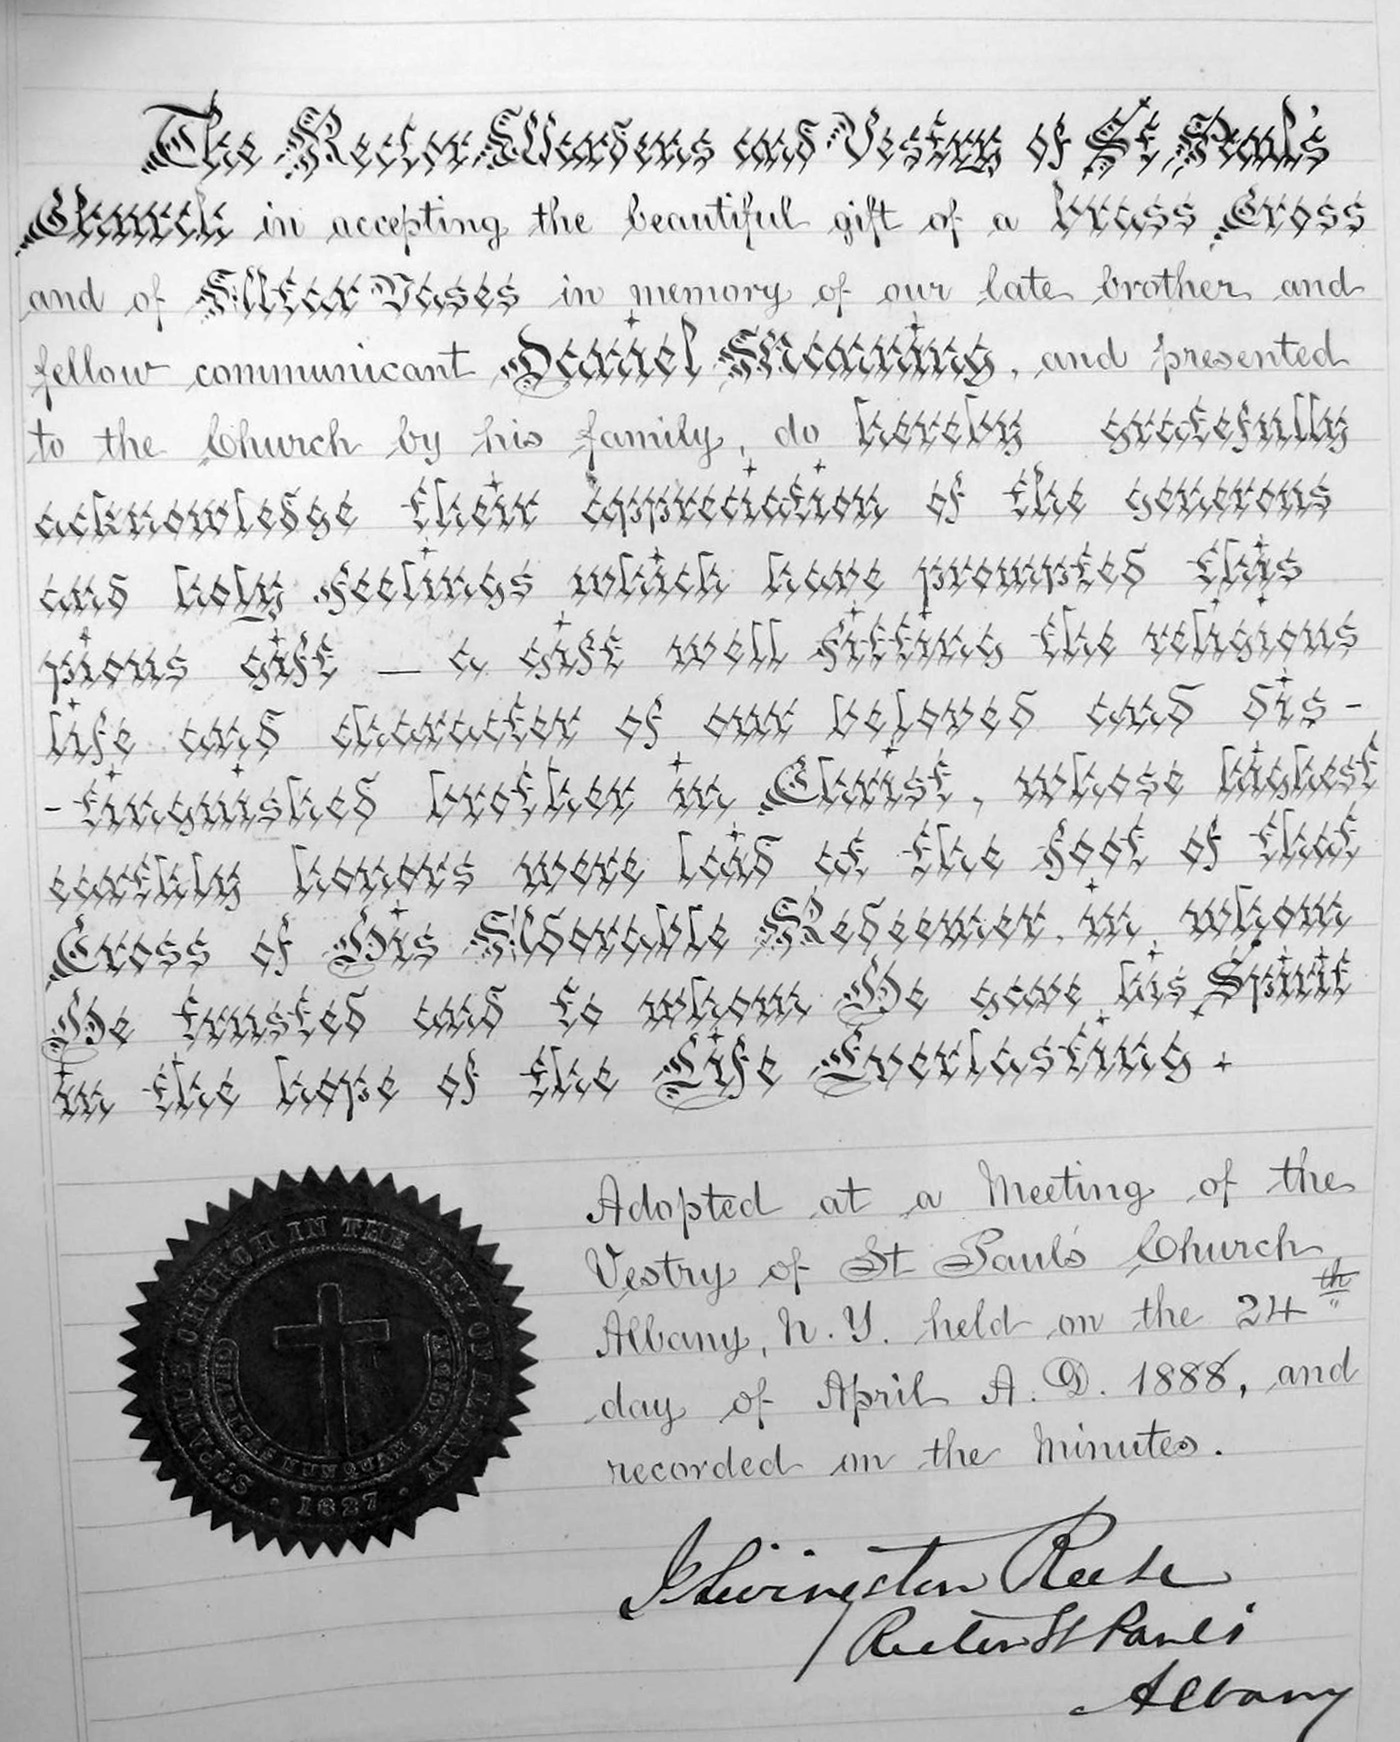 The Rector Wardens and Vestry of St Paul's
Church in accepting the beautiful gift of a brass Cross
and of Altar Vases in memory of our late brother and
fellow communicant Daniel Manning, and presented
to the Church by his family, do hereby gratefully
acknowledge their appreciation of the generous
and holy feelings which have prompted this
pious gift — a gift well fitting the religious
life and character of our beloved and dis-
-tinguished brother in Christ, whose highest
earthly honors were laid at the foot of that
Cross of His Adorable Redeemer, in whom
He trusted and to whom He gave his Spirit
in the hope of the Life Everlasting.
Adopted at a Meeting of the
Vestry of St Paul's Church
Albany, N. Y. held on the 24th
day of April A. D. 1888, and
recorded on the Minutes.
J Livingston Reese
Rector St Paul's
Albany
ST PAUL'S CHURCH IN THE CITY OF ALBANY
1827